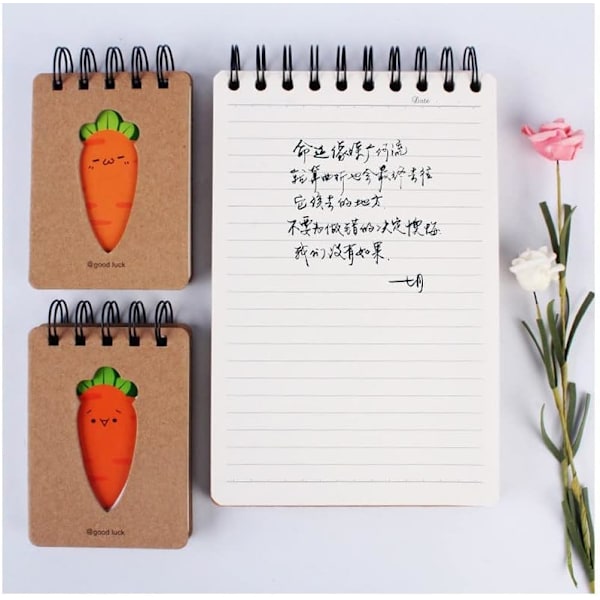 @good luck
@good luck
Date
命运像媒广河流
就算曲折也会最终去往
它该去的地方
不要为做错的决定懊悔
我们没有如果.
——七月